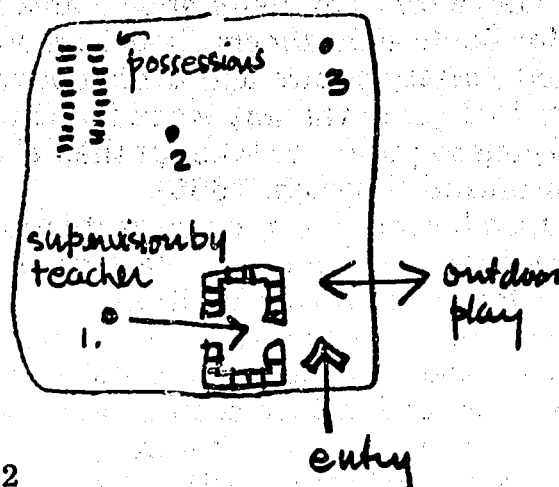 possessions
3
2
supervision by
teacher
1.
outdoor
play
entry
2